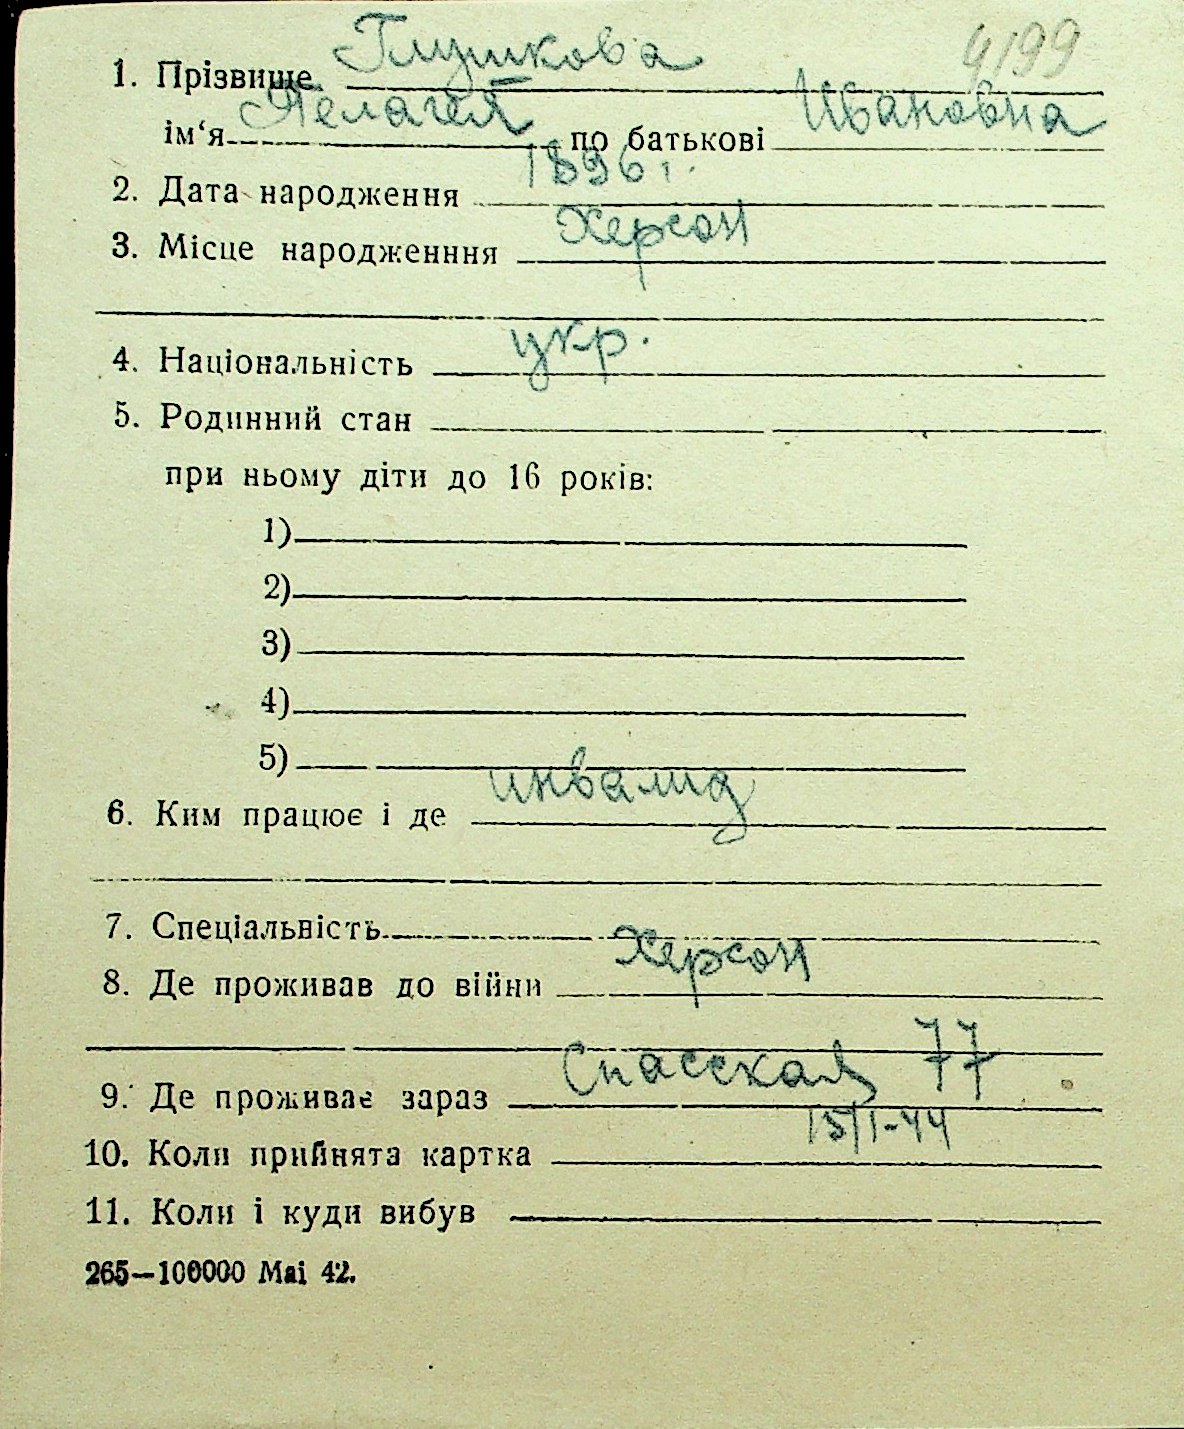 4199
1. Прізвище Глушкова
ім‘я Пелагея по батькові Ивановна
2. Дата народження 1896 г.
3. Місце народженння Херсон
4. Національність укр.
5. Родинний стан
при ньому діти до 16 років:
1)
2)
3)
4)
5)
6. Ким працює і де инвалид
7. Спеціальність
8. Де проживав до війни Херсон
9. Де проживає зараз Спасская 77
10. Коли прийнята картка 15/I-44
11. Коли і куди вибув
265—100000 Mai 42.